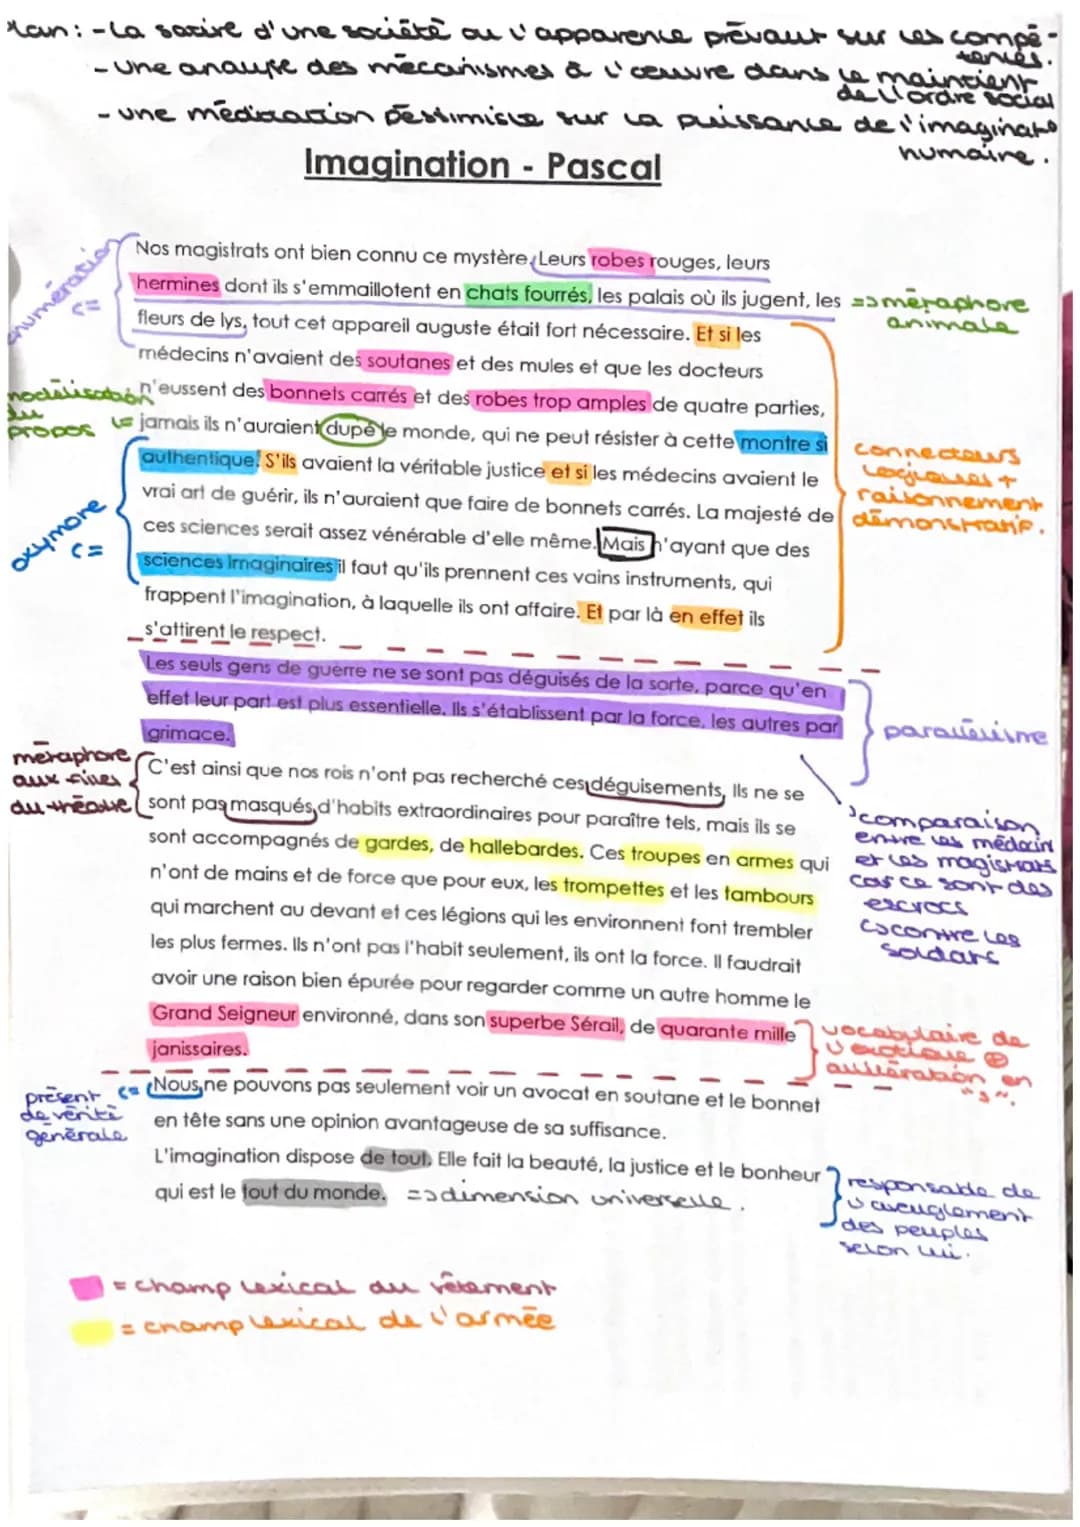 Plan : - La satire d'une société où l'apparence prévaut sur les compé-
tences.
- une analyse des mécanismes à l'œuvre dans le maintient
de l'ordre social
- une méditation pessimiste sur la puissance de l'imaginat°
humaine.
Imagination - Pascal
énumération
<=
Nos magistrats ont bien connu ce mystère. Leurs robes rouges, leurs
hermines dont ils s'emmaillotent en chats fourrés, les palais où ils jugent, les
=> métaphore
animale
fleurs de lys, tout cet appareil auguste était fort nécessaire. Et si les
médecins n'avaient des soutanes et des mules et que les docteurs
n'eussent des bonnets carrés et des robes trop amples de quatre parties,
modélisation
du
propos <=
jamais ils n'auraient dupé le monde, qui ne peut résister à cette montre si
authentique. S'ils avaient la véritable justice et si les médecins avaient le
vrai art de guérir, ils n'auraient que faire de bonnets carrés. La majesté de
ces sciences serait assez vénérable d'elle même. Mais n'ayant que des
sciences imaginaires il faut qu'ils prennent ces vains instruments, qui
frappent l'imagination, à laquelle ils ont affaire. Et par là en effet ils
s'attirent le respect.
connecteurs
logiques +
raisonnement
démonstratif.
oxymore
<=
Les seuls gens de guerre ne se sont pas déguisés de la sorte, parce qu'en
effet leur part est plus essentielle. Ils s'établissent par la force, les autres par
grimace.
parallélisme
métaphore
aux files
du théatre
C'est ainsi que nos rois n'ont pas recherché ces déguisements, Ils ne se
sont pas masqués d'habits extraordinaires pour paraître tels, mais ils se
sont accompagnés de gardes, de hallebardes. Ces troupes en armes qui
n'ont de mains et de force que pour eux, les trompettes et les tambours
qui marchent au devant et ces légions qui les environnent font trembler
les plus fermes. Ils n'ont pas l'habit seulement, ils ont la force. Il faudrait
avoir une raison bien épurée pour regarder comme un autre homme le
Grand Seigneur environné, dans son superbe Sérail, de quarante mille
janissaires.
comparaison
entre les médecins
et les magistrats
car ce sont des
escrocs
contre les
soldats
vocabulaire de
l'exotique ⊕
allitération en
"s".
présent <=
de vérité
générale
Nous ne pouvons pas seulement voir un avocat en soutane et le bonnet
en tête sans une opinion avantageuse de sa suffisance.
L'imagination dispose de tout. Elle fait la beauté, la justice et le bonheur
qui est le tout du monde. => dimension universelle.
responsable de
l'aveuglement
des peuples
selon lui.
= champ lexical du vêtement
= champ lexical de l'armée